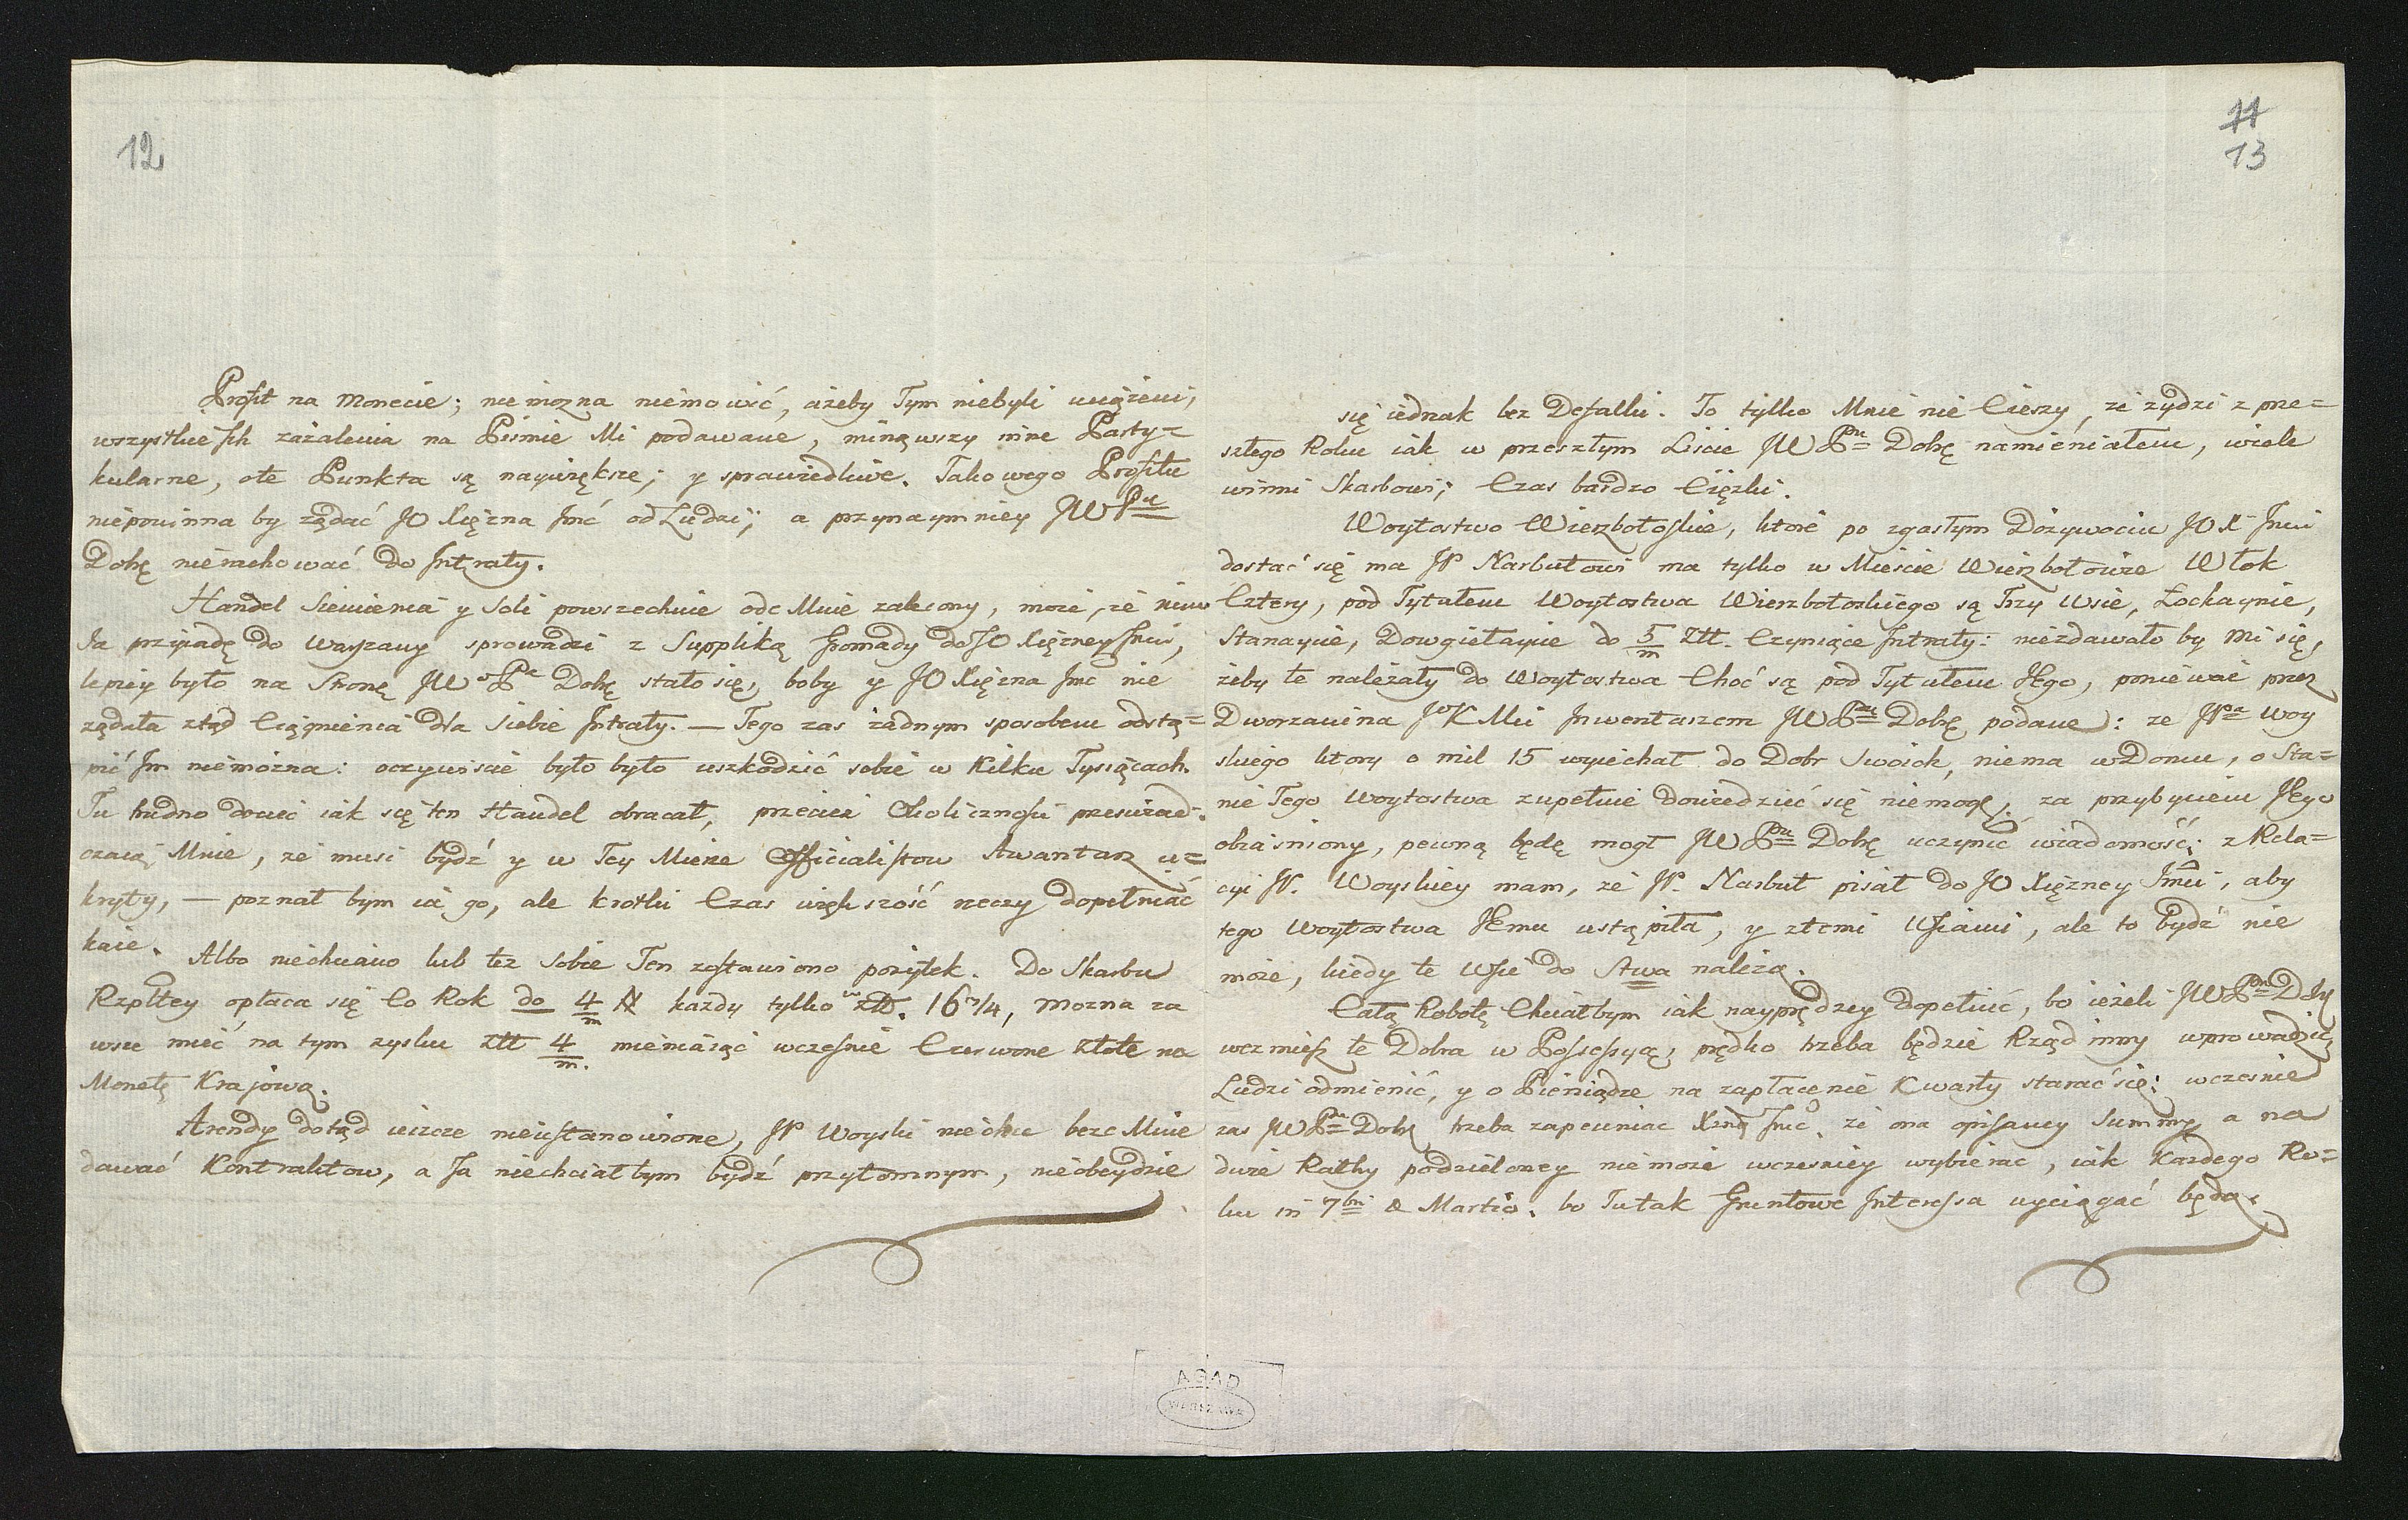 12
Profit na Monecie; niemozna niemowić, ażeby Tym niebyli uciążeni,
wszystkie Ich zażalenia na Pismie Mi podawane, minąwszy inne Party=
kularne, ote Punkta są naywiększe; y sprawiedliwe. Takowego Profitu
niepowinna by żądać JO Xiężna Jmć od Ludzi; a przynaymniey JWPu
Dobę nierachować do Intraty.
Handel Siemienia y Soli powszechnie ode Mnie zalecony, może, że nim
Ja przyiadę do Warszawy sprowadzi z Suppliką Gromady do JO Xiężney Jmci,
lepiey było na Stronę JWPa Dobę stało się, boby y JO Xiężna Jmc nie
żądała ztąd Ciągnienia dla Siebie Intraty. — Tego zas żadnym sposobem odstą=
pić Im niemożna: oczywiscie było było uszkodzić sobie w Kilku Tysiącach.
Tu trudno dociec iak się ten Handel obracał, przeciez Okolicznosci przeswiad=
czaią Mnie, że musi bydź y w Tey Mierze Officialistow Awantaz u=
kryty, — poznał bym ia go, ale krotki Czas większość rzeczy dopełniać
kaie. Albo niechciano lub tez Sobie Ten zostawiono pożytek. Do Skarbu
Rzpltey opłaca się Co Rok do 4/m # kazdy tylko ztt. 16 3/4, mozna za
wsze mieć na tym zysku ztt 4/m. mieniaiąc wczesnie Czerwone złote na
Monetę Krajową.
Arendy dotąd ieszcze nieustanowione, JP Woyski niechce beze Mnie
dawać Kontraktow, a Ja niechciałbym bydź przytomnym, nieobeydzie
11
13
się iednak bez Defalki. To tylko Mnie nie Cieszy, ze zydzi z prze=
szłego Roku iak w przeszłym Liscie JWPu Dobę namieniałem, wiele
winni Skarbowi; Czas bardzo Ciężki.
Woytostwo Wierzbołoskie, ktore po zgasłym Dożywociu JOX Jmci
dostać się ma JP Narbutowi ma tylko w Miescie Wierzbołowie Włok
Cztery, pod Tytułem Woytostwa Wierzbołoskiego są Trzy Wsie, Łockaynie,
Stanaycie, Dowgiełaycie do 5/m Ztt. Czyniące Intraty: niezdawało by mi się,
żeby te należały do Woytostwa Choć są pod Tytułem Jego, ponieważ przez
Dworzanina JK Mci Inwentarzem JWPu Dobę podane: ze JPa Woy
skiego ktory o mil 15 wyiechał do Dobr Swoich, niema w Domu, o Sta=
nie Tego Woytostwa zupełnie dowiedzieć się niemogę, za przybyciem Jego
obiaśniony, pewną będę mogł JWPu Dobę uczynić wiadomość; z Rela=
cyi JP. Woyskiey mam, że JP. Narbut pisał do JO Xiężney Jmci, aby
tego Woytostwa Jemu ustąpiła, y ztemi Wsiami, ale to bydź nie
może, kiedy te Wsie do Stwa należą.
Całą Robotę Chciałbym iak nayprędzey dopełnić, bo ieżeli JWPan Dobę
wezmiesz te Dobra w Possessyą, prędko trzeba będzie Rząd inny wprowadzić,
Ludzi odmienić, y o Pieniądze na zapłacenie Kwarty starać się; wczesnie
zas JWPa Dobę trzeba zapewniac Xzną Jmć, że ona opisaney Summy, a na
dwie Rathy podzieloney niemoże wczesniey wybierac, iak Każdego Ro=
ku in 7bri & Martio. bo Tu tak Gruntowe Interessa wyciągać będą.
AGAD
WARSZAWA